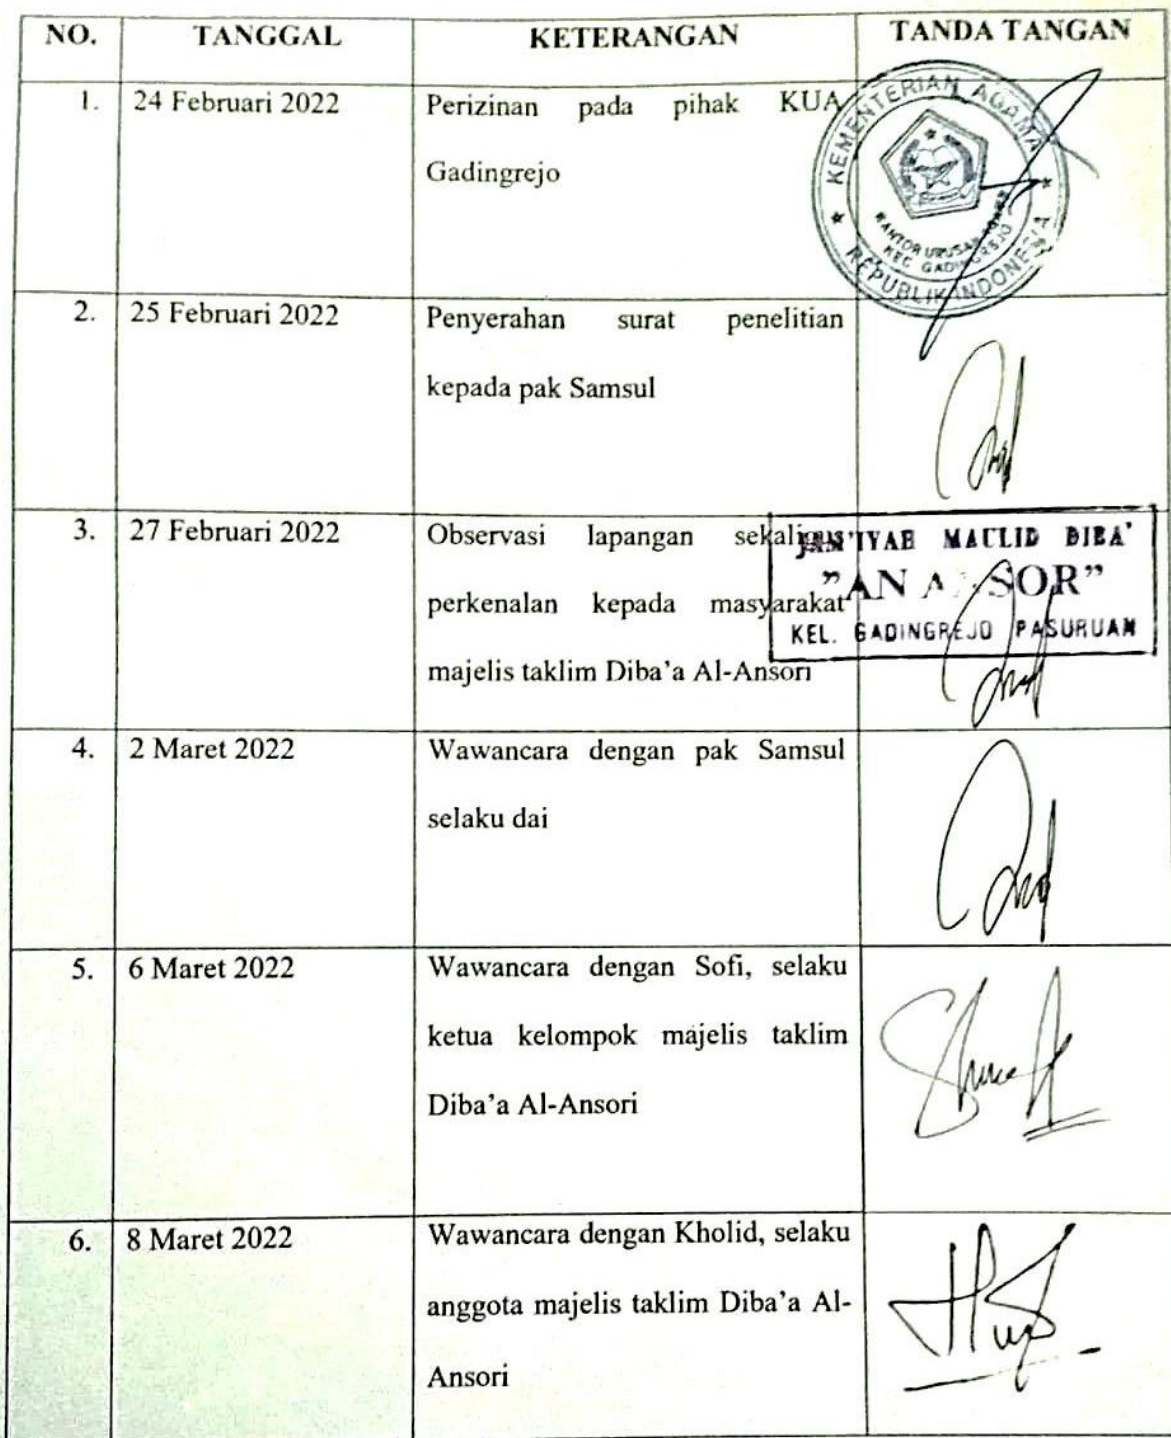 NO. TANGGAL KETERANGAN TANDA TANGAN
1. 24 Februari 2022 Perizinan pada pihak KUA
Gadingrejo
KEMENTERIAN AGAMA
KANTOR URUSAN AGAMA
KEC GADINGREJO
REPUBLIK INDONESIA
2. 25 Februari 2022 Penyerahan surat penelitian
kepada pak Samsul
3. 27 Februari 2022 Observasi lapangan sekaligus
perkenalan kepada masyarakat
majelis taklim Diba'a Al-Ansori
JAM'IYAH MAULID DIBA'
"AN ANSOR"
KEL. GADINGREJO PASURUAN
4. 2 Maret 2022 Wawancara dengan pak Samsul
selaku dai
5. 6 Maret 2022 Wawancara dengan Sofi, selaku
ketua kelompok majelis taklim
Diba'a Al-Ansori
6. 8 Maret 2022 Wawancara dengan Kholid, selaku
anggota majelis taklim Diba'a Al-
Ansori